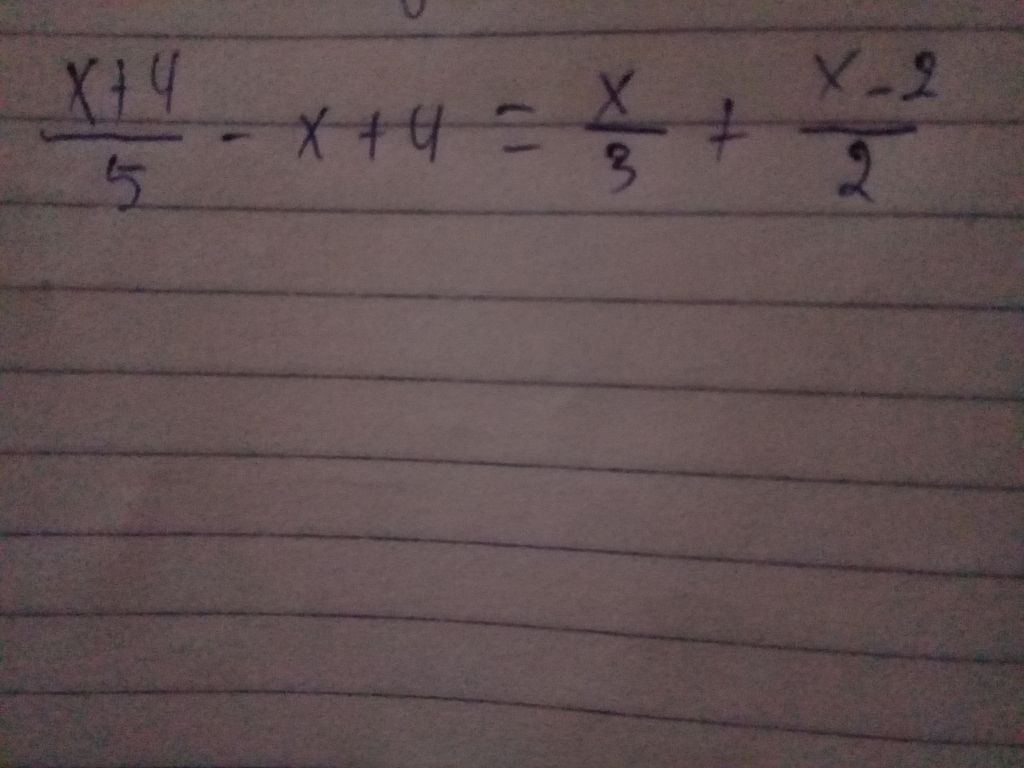 x+4/5 - x + 4 = x/3 + x-2/2